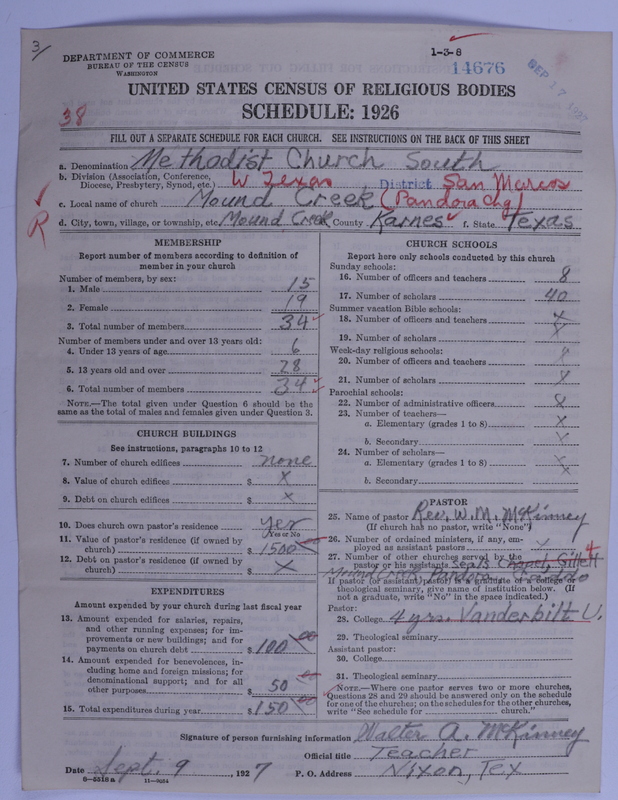 3/
DEPARTMENT OF COMMERCE
BUREAU OF THE CENSUS
WASHINGTON
1-3-8
14676
SEP 17 192
UNITED STATES CENSUS OF RELIGIOUS BODIES
SCHEDULE: 1926
38
FILL OUT A SEPARATE SCHEDULE FOR EACH CHURCH. SEE INSTRUCTIONS ON THE BACK OF THIS SHEET
a. Denomination Methodist Church South
b. Division (Association, Conference, Diocese, Presbytery, Synod, etc.) W Texas District San Marcos
c. Local name of church Mound Creek (Pandora Chg)
R
d. City, town, village, or township, etc. Mound Creek County Karnes f. State Texas
MEMBERSHIP
Report number of members according to definition of
member in your church
Number of members, by sex:
1. Male 15
2. Female 19
3. Total number of members 34
Number of members under and over 13 years old:
4. Under 13 years of age 6
5. 13 years old and over 28
6. Total number of members 34
NOTE.—The total given under Question 6 should be the
same as the total of males and females given under Question 3.
CHURCH BUILDINGS
See instructions, paragraphs 10 to 12
7. Number of church edifices none
8. Value of church edifices $ x
9. Debt on church edifices $ x
10. Does church own pastor's residence yes
Yes or No
11. Value of pastor's residence (if owned by
church) $ 1500
12. Debt on pastor's residence (if owned by
church) $ x
EXPENDITURES
Amount expended by your church during last fiscal year
13. Amount expended for salaries, repairs,
and other running expenses; for im-
provements or new buildings; and for
payments on church debt $ 100 00
14. Amount expended for benevolences, in-
cluding home and foreign missions; for
denominational support; and for all
other purposes $ 50 00
15. Total expenditures during year $ 150 00
CHURCH SCHOOLS
Report here only schools conducted by this church
Sunday schools:
16. Number of officers and teachers 8
17. Number of scholars 40
Summer vacation Bible schools:
18. Number of officers and teachers x
19. Number of scholars x
Week-day religious schools:
20. Number of officers and teachers x
21. Number of scholars x
Parochial schools:
22. Number of administrative officers x
23. Number of teachers—
a. Elementary (grades 1 to 8) x
b. Secondary x
24. Number of scholars—
a. Elementary (grades 1 to 8) x
b. Secondary x
PASTOR
25. Name of pastor Rev. W. M. McKinney
(If church has no pastor, write "None")
26. Number of ordained ministers, if any, em-
ployed as assistant pastors x
27. Number of other churches served by the 4
pastor or his assistants Seals Chapel, Gillett
Pandora
If pastor (or assistant) pastor is a graduate of a college or
theological seminary, give name of institution below. (If
not a graduate, write "No" in the space indicated.)
Pastor:
28. College 4 yrs. Vanderbilt U.
29. Theological seminary
Assistant pastor:
30. College
31. Theological seminary
NOTE.—Where one pastor serves two or more churches,
Questions 28 and 29 should be answered only on the schedule
for one of the churches; on the schedules for the other churches,
write "See schedule for church."
Signature of person furnishing information Walter A. McKinney
Official title Teacher
Date Sept. 9, 1927 P. O. Address Nixon, Tex
8-5518a 11-9034